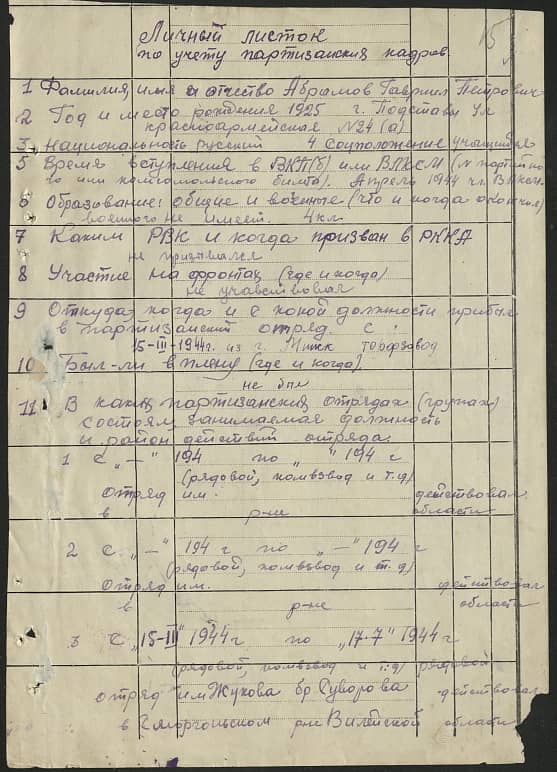 15
Личный листок
по учету партизанских кадров.
1 Фамилия, имя и отчество Абрамов Гавриил Петрович
2 Год и место рождения 1925 г. Подставы ул
красноармейская №24 (а)
3. Национальность русский 4 Соцположение учащийся
5 Время вступления в ВКП(б) или ВЛКСМ (№ партийно
го или комсомольского билета). Апрель 1944 чл. ВЛКСМ.
6 Образование: общие и военные (что и когда окончил)
военного не имеет. 4 кл.
7 Каким РВК и когда призван в РККА
не призывался
8 Участие на фронтах (где и когда)
не учавствовал
9 Откуда, когда и с какой должности прибыл
в партизанский отряд. с
15-III-1944г. из г. Минск торфзавод
10 Был-ли в плену (где и когда).
не был
11 В каких партизанских отрядах (групах)
состоял, занимаемая должность
и район действий отряда.
1 с „—" 194 по „ " 194 г
(рядовой, комвзвод и т.д)
отряд им. действовал
в р-не области
2 с „—" 194 г по „—" 194 г
(рядовой, комвзвод и т. д)
отряд им. действовал
в р-не области
3 с „15-III" 1944 г по „17-7" 1944 г
(рядовой, комвзвод и т.д) рядовой
отряд им Жукова бр Суворова действовал
в Сморгоньском р-не Вилейской области